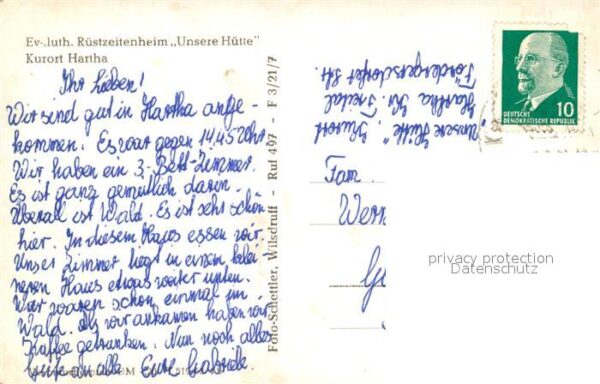 Ev.-luth. Rüstzeitenheim „Unsere Hütte"
Kurort Hartha
Ihr Lieben!
Wir sind gut in Hartha ange-
kommen. Es war gegen 14,45 Uhr.
Wir haben ein 3-Bett-Zimmer.
Es ist ganz gemütlich darin.
Überall ist Wald. Es ist sehr schön
hier. In diesem Haus essen wir.
Unser Zimmer liegt in einem klei-
neren Haus etwas weiter unten.
Wir waren schon einmal im
Wald. Als wir ankamen haben wir
Kaffee getrunken. Nun noch alles
Gute an alle Eure Gabriele.
Foto-Schettler, Wilsdruff - Ruf 497 - F 3/21/7
"Unsere Hütte", Kurort
Hartha Kr. Freital
Fördergersdorfer Str.
DEUTSCHE
DEMOKRATISCHE REPUBLIK
10
Fam.
Wern
privacy protection
Datenschutz